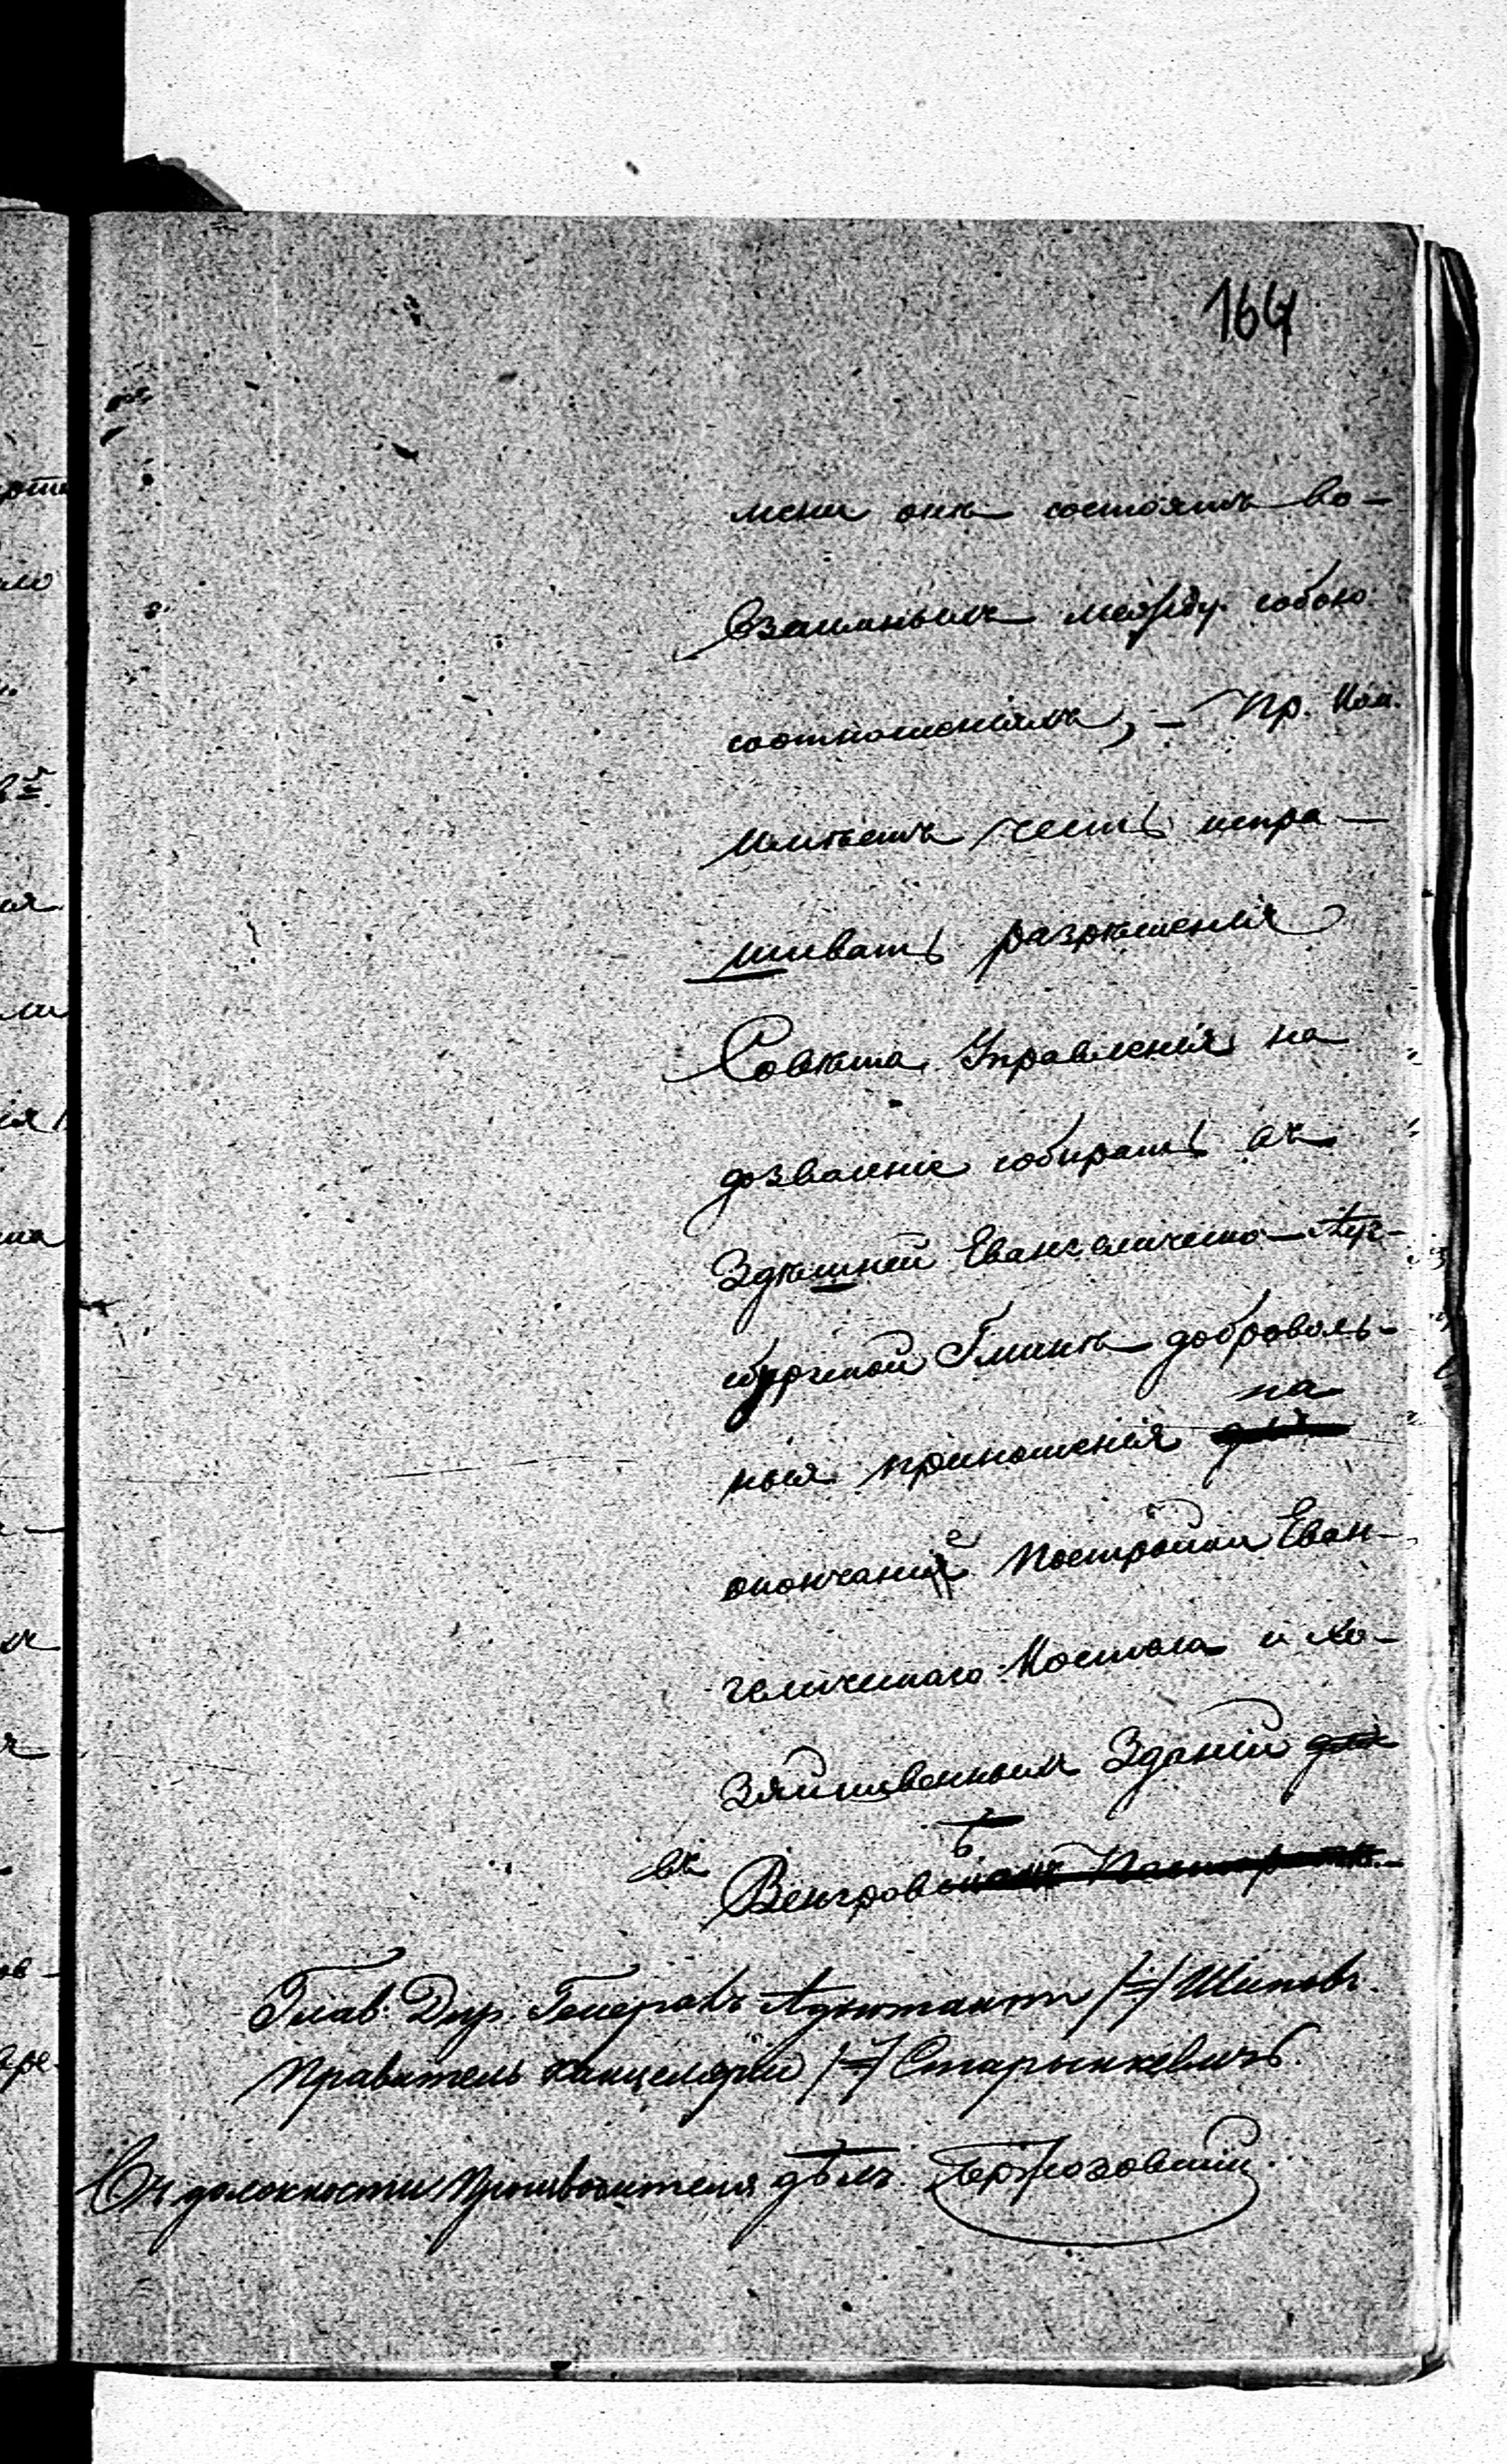 164
мени онѣ состоятъ во-
взаимныхъ между собою
соотношеніяхъ, - Пр. Ком.
имѣетъ честь испра-
шивать разрѣшенія
Совѣта Управленія на
дозваленіе собирать въ
Здѣшней Евангелическо-Аугс-
бургской Гминѣ доброволь-
ныя приношенія на
окончаніе постройки Еван-
гелическаго Костела и хо-
зяйственныхъ Зданій для
въ Венгровѣ
Глав. Дир. Генералъ Адъютантъ /-/ Шиповъ.
Правитель Канцеляріи /-/ Старынкевичъ.
Въ должности Производителя дѣлъ